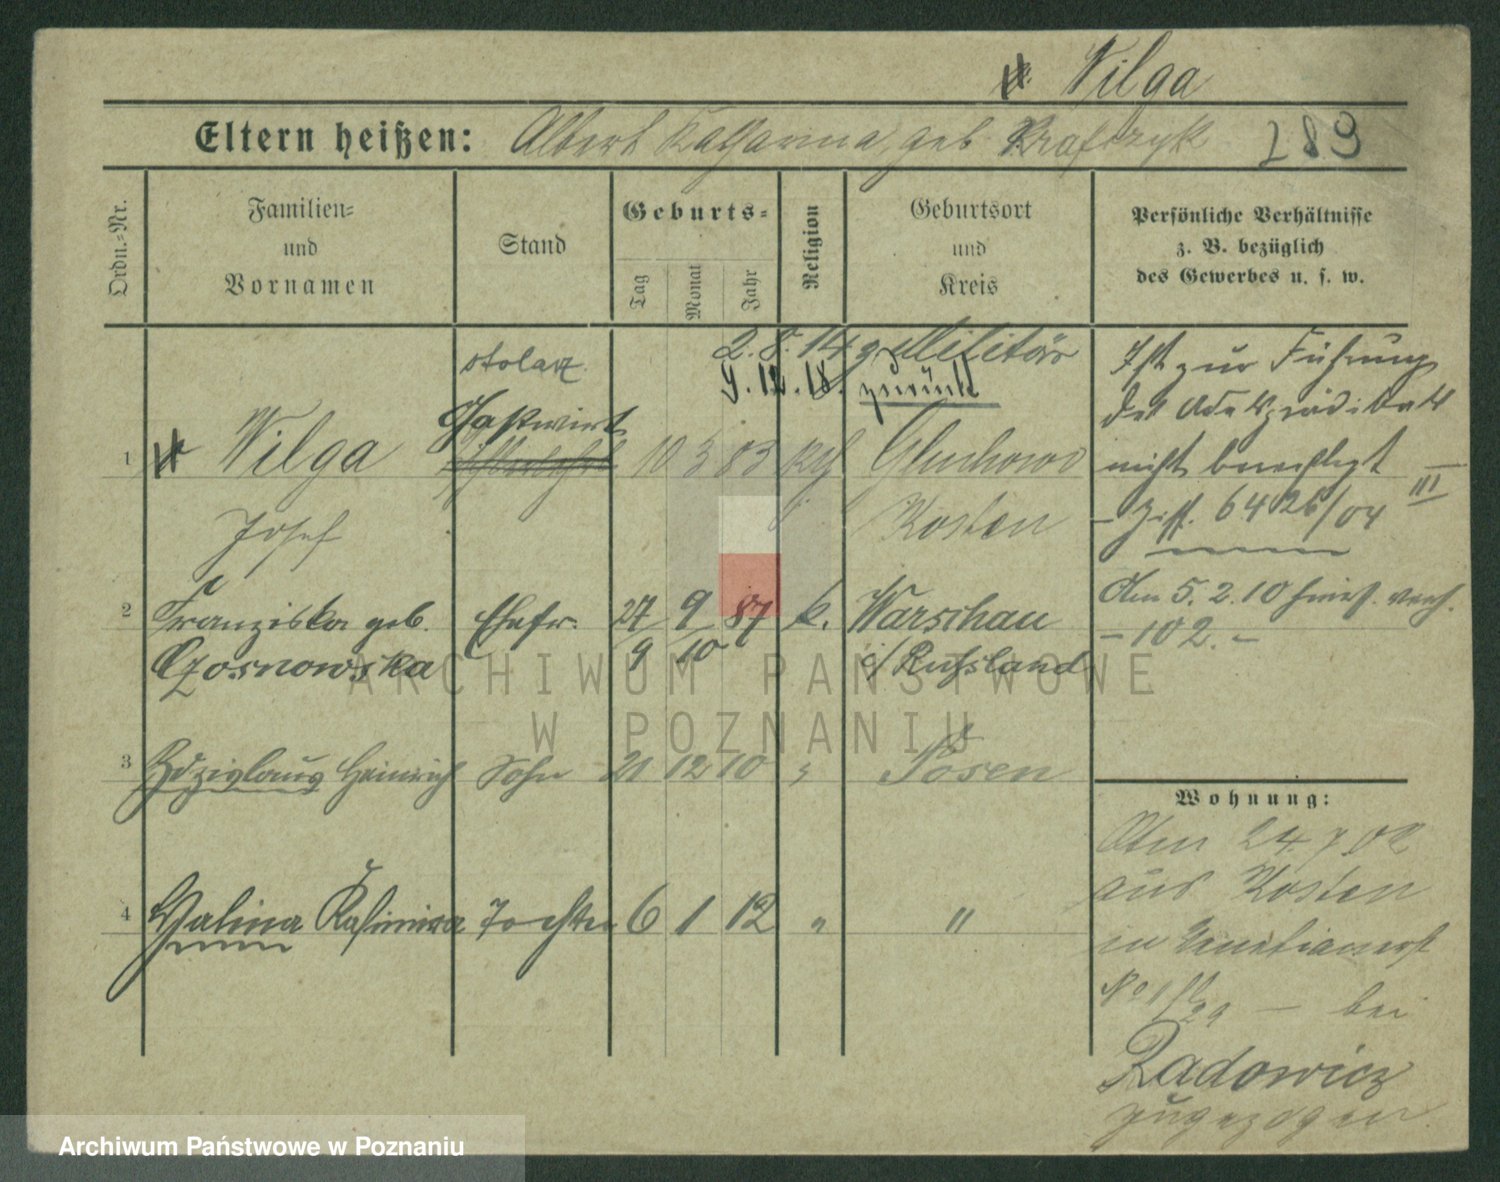 v. Wilga
Eltern heißen: Albert Katharina, geb. Krafczyk 289
Ordn.-Nr.
Familien-
und
Vornamen
Stand
Geburts-
Tag
Monat
Jahr
Religion
Geburtsort
und
Kreis
Persönliche Verhältnisse
z. B. bezüglich
des Gewerbes u. s. w.
stolarz
2.8.14 z. Militär
9.12.18. zurück
1 v. Wilga Gastwirt 10 3 83 kth Gluchowo
Josef Kosten
Ist zur Führung
des Adelsprädikats
nicht berechtigt
- Ziff. 6426/04 III
Am 5.2.10
- 102. -
2 Franziska geb. Ehefr. 27 9 87 k. Warschau
Czosnowska 9 10 i/Russland
3 Zdzislaus Heinrich Sohn 21 12 10 " Posen
4 Halina Kasimira Tochter 6 1 12 " "
Wohnung:
Am 24.7.02
aus Kosten
in Venetianerst
No
29 - bei
Radowicz
zugezogen
ARCHIWUM PAŃSTWOWE
W POZNANIU
Archiwum Państwowe w Poznaniu